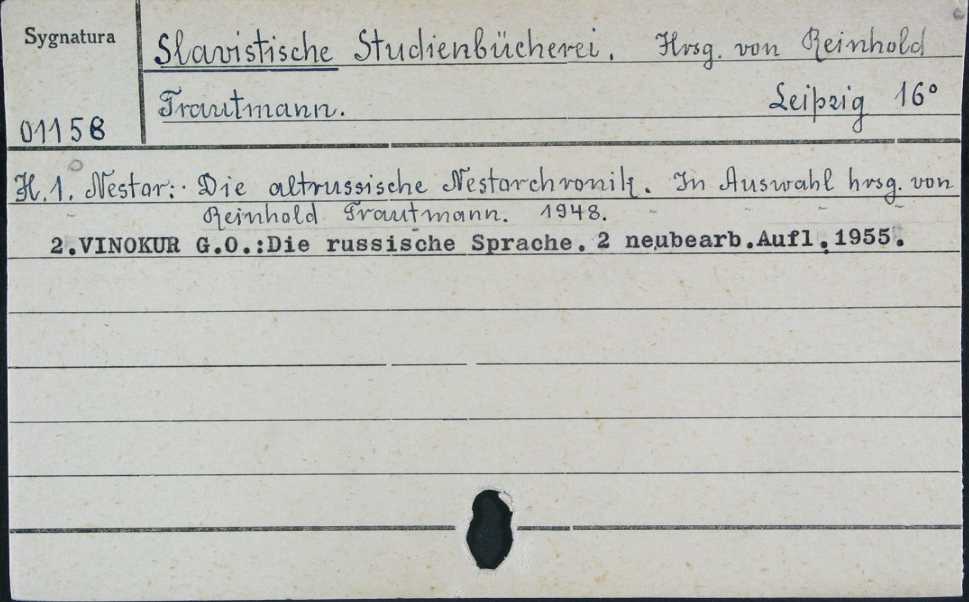 Sygnatura
Slavistische Studienbücherei. Hrsg. von Reinhold
Trautmann. Leipzig 16°
01158
H.1. Nestor: Die altrussische Nestorchronik. In Auswahl hrsg. von
Reinhold Trautmann. 1948.
2.VINOKUR G.O.:Die russische Sprache. 2 neubearb.Aufl.1955.